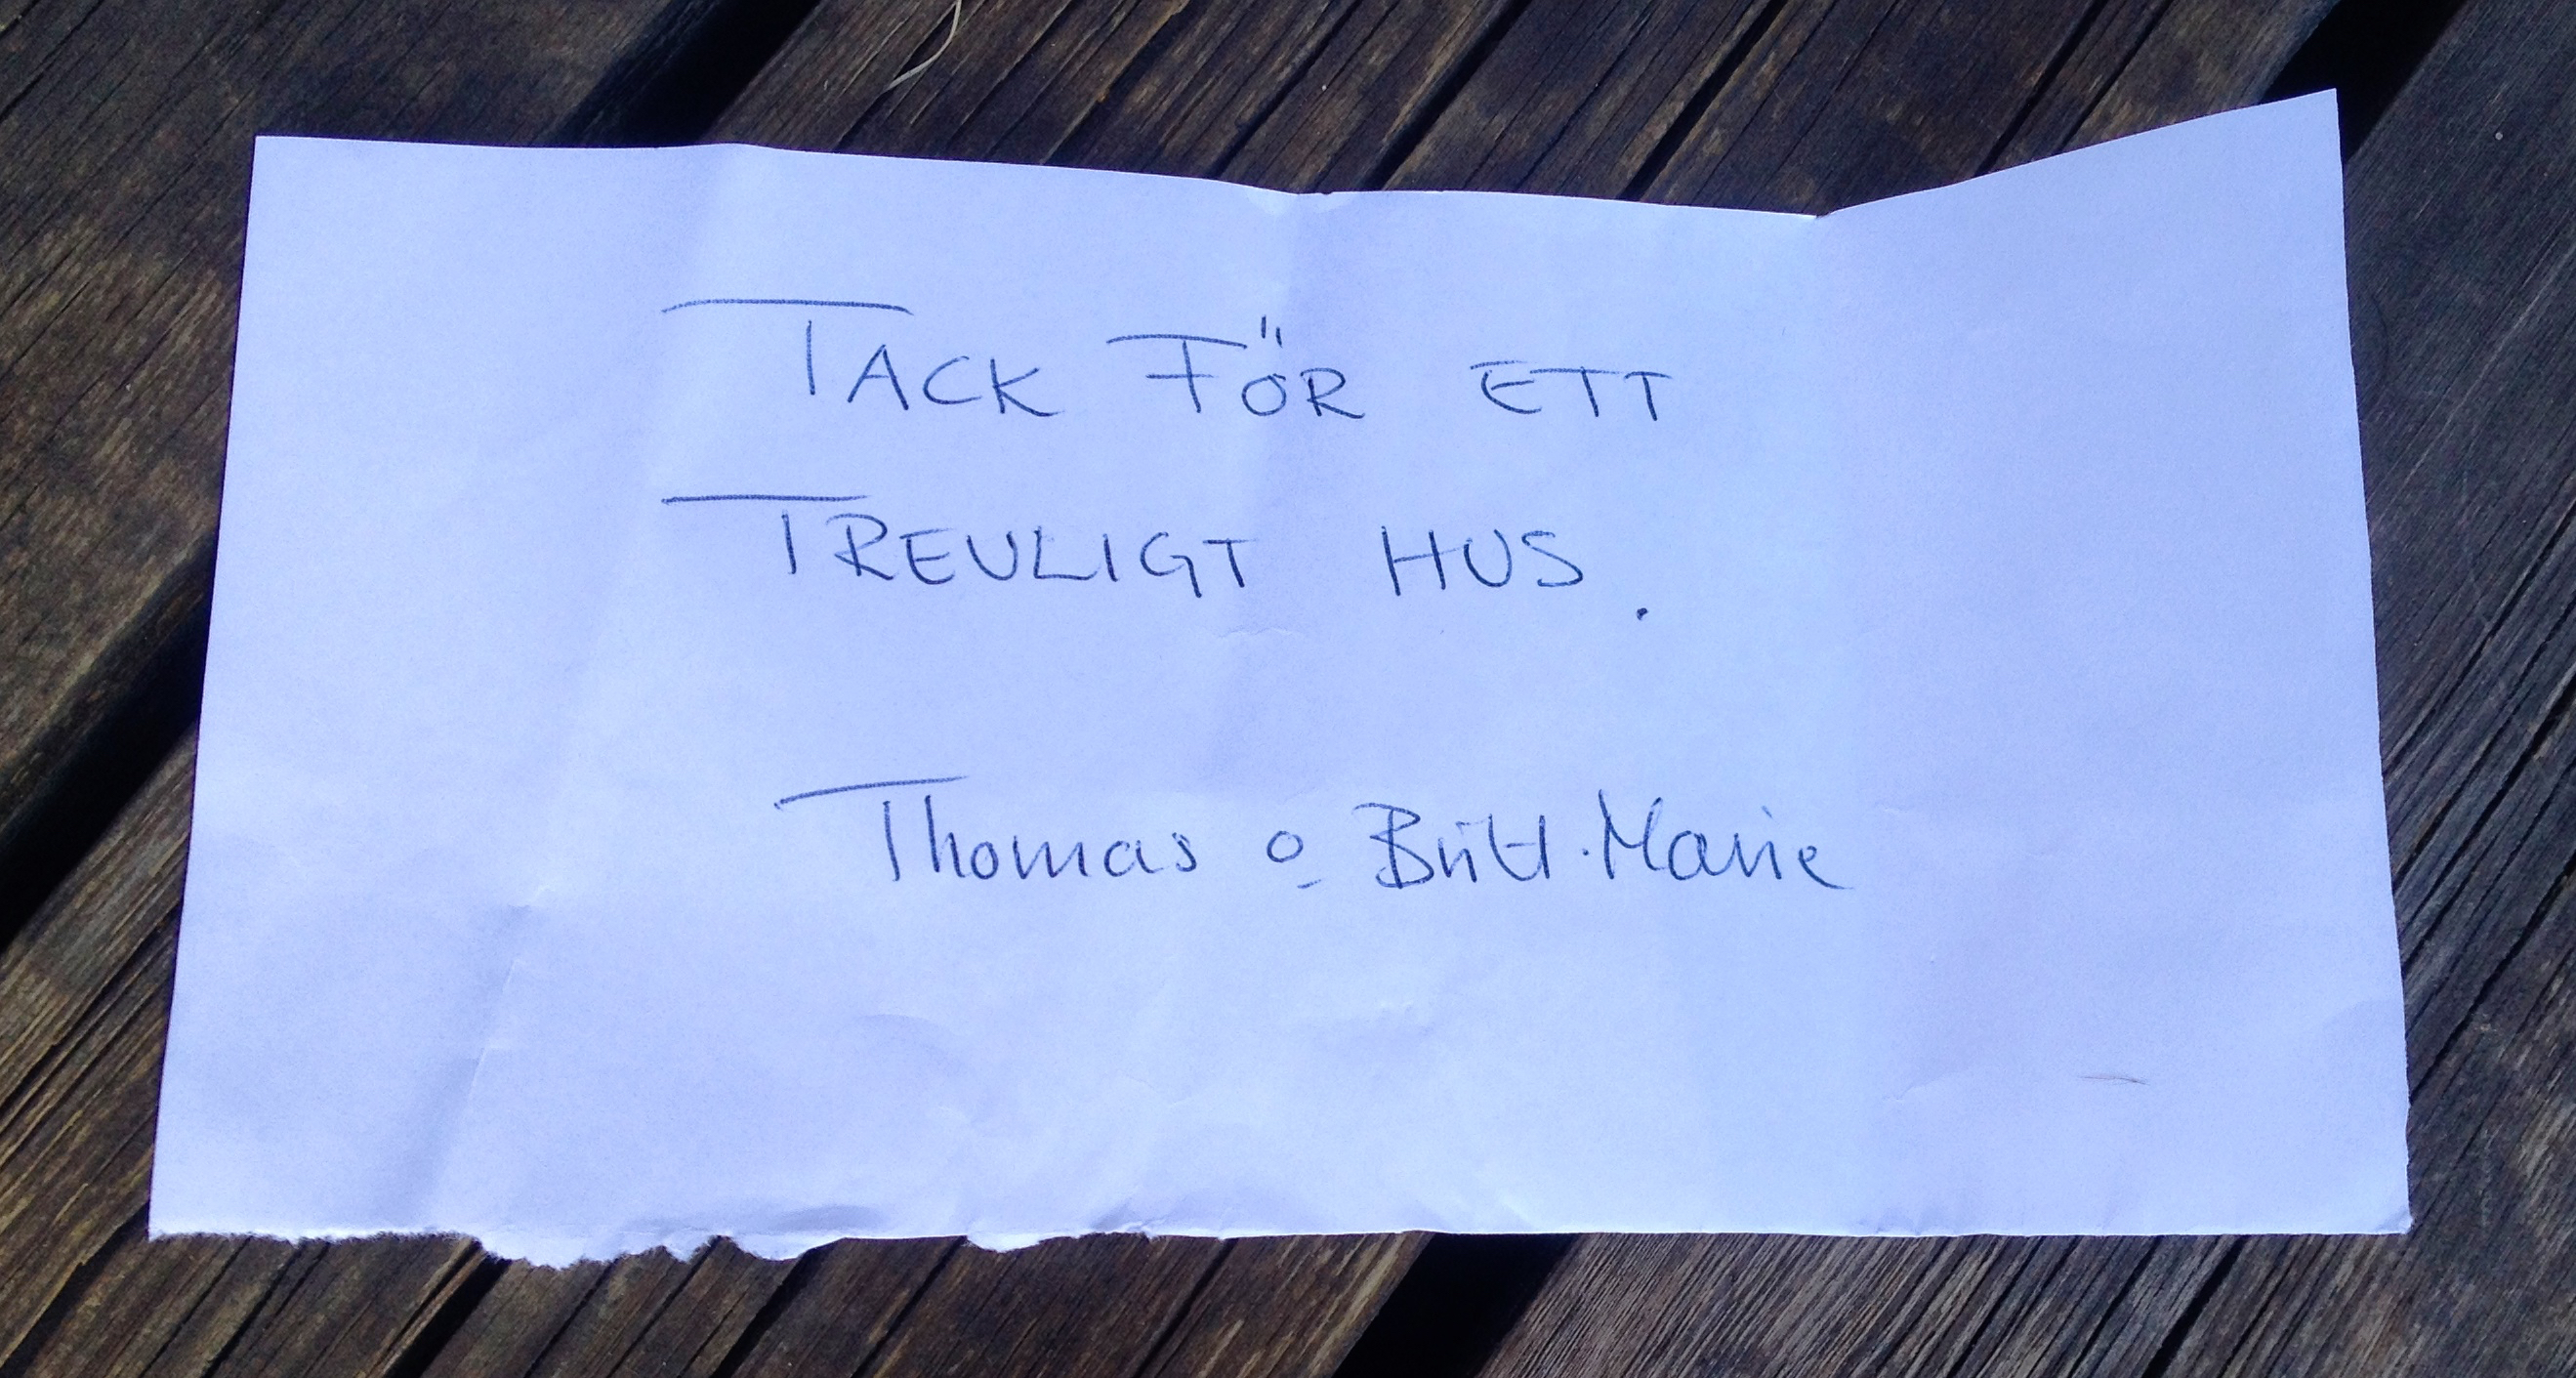 TACK FÖR ETT
TREVLIGT HUS.
Thomas o Britt-Marie